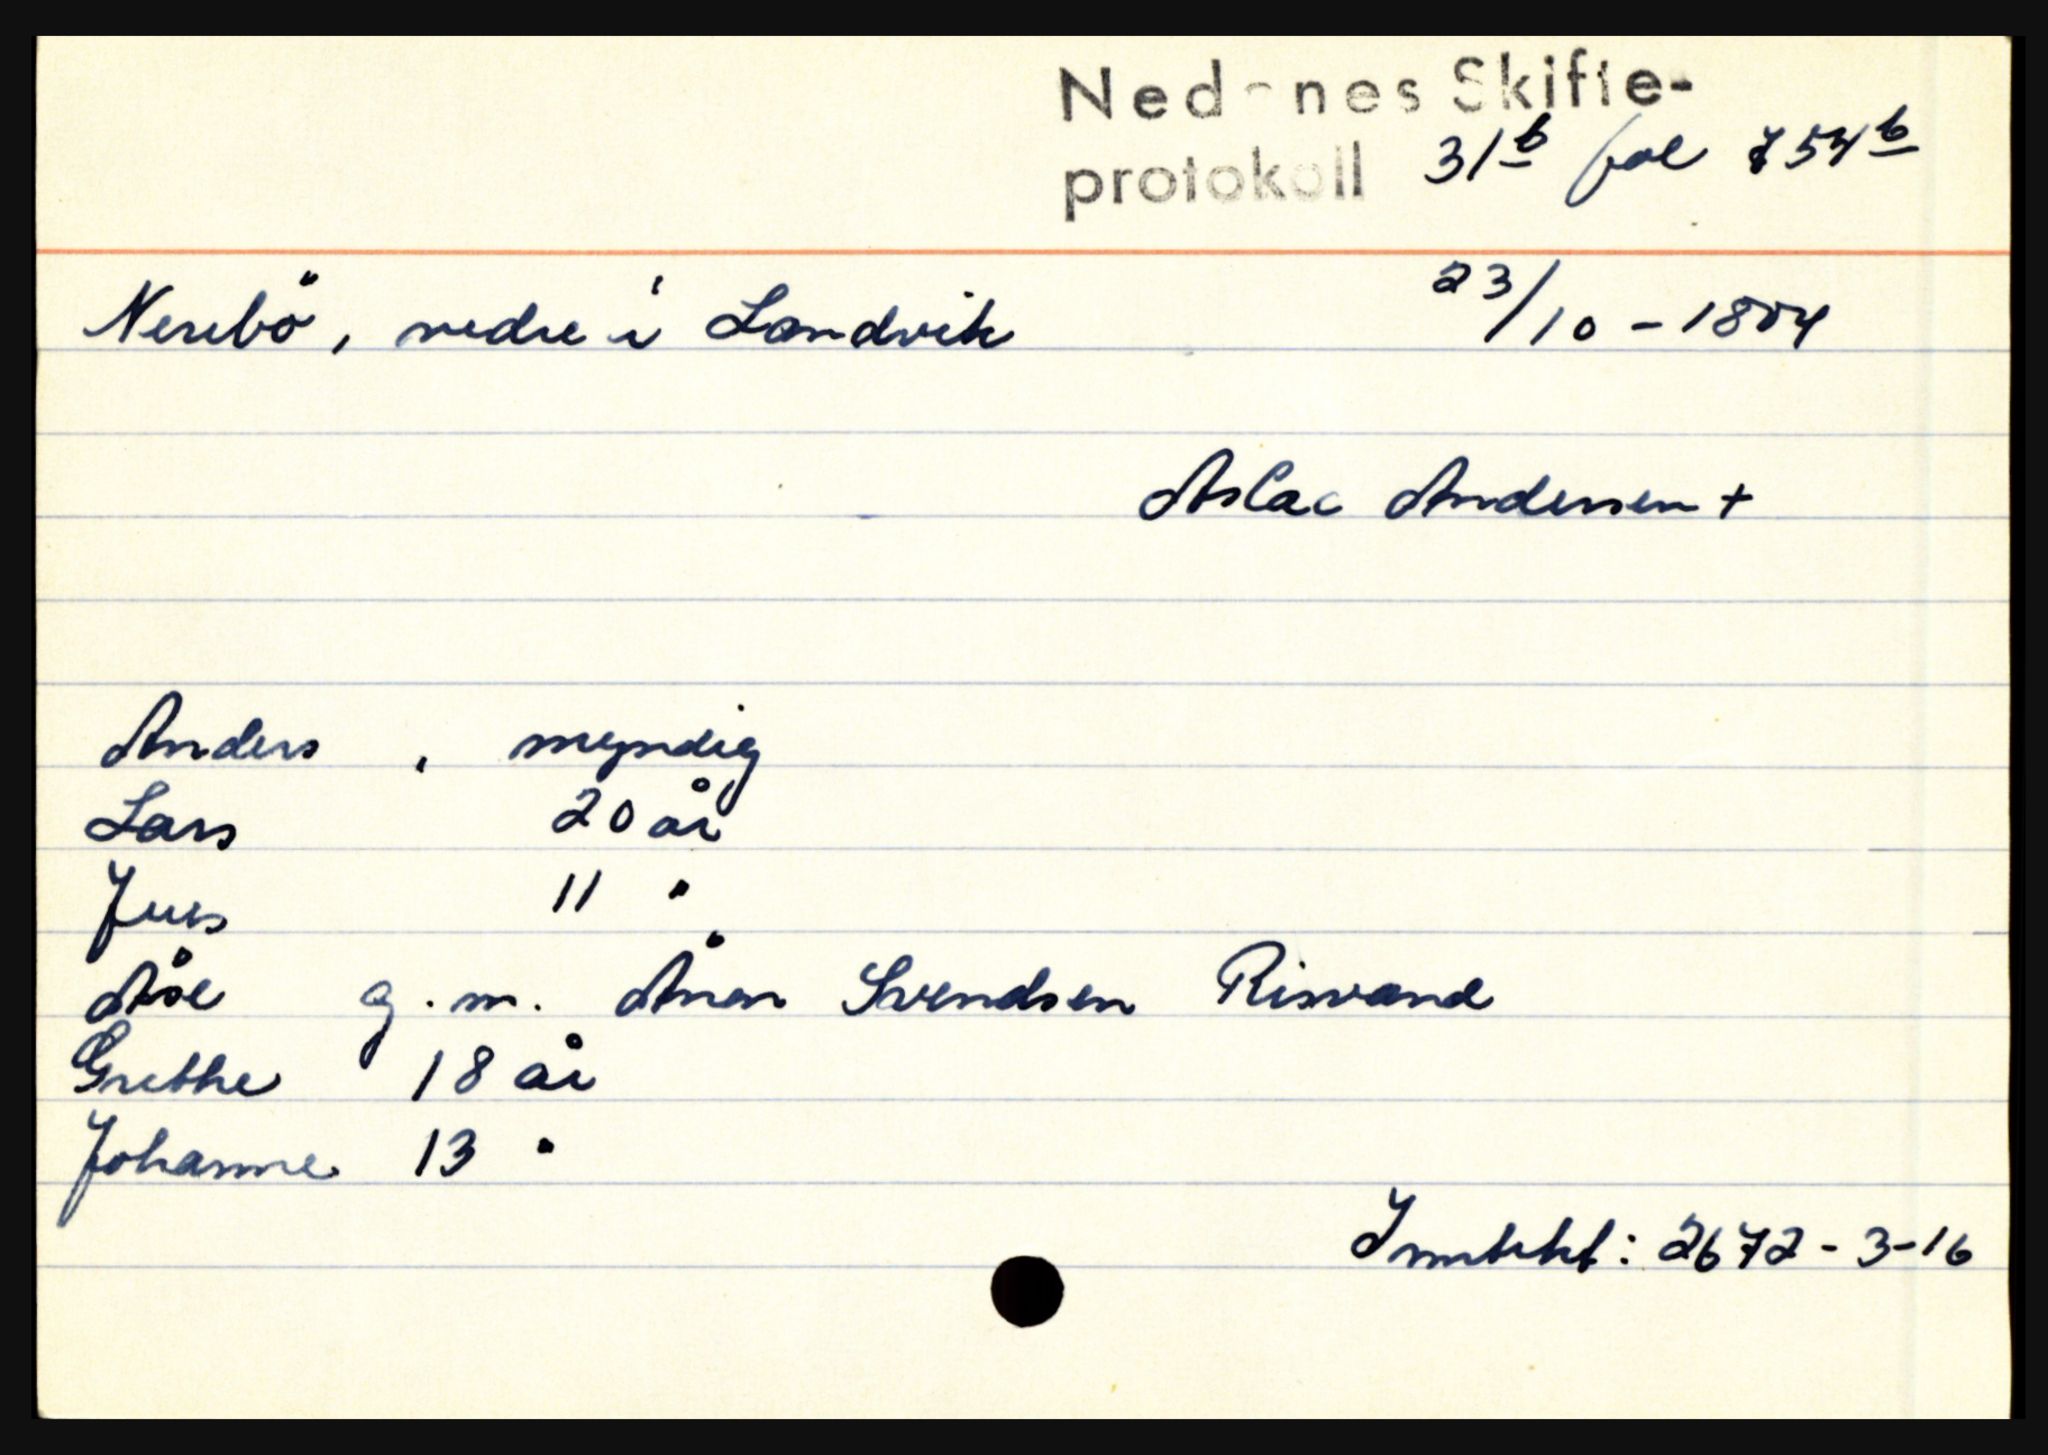 Nedenes Skifte-
protokoll 31b fol 754b
Nerebö, nedre i Landvik 23/10-1804
Aslac Andersen +
Anders, myndig
Lars 20 år
Jens 11 "
Åse g.m. Ånon Svendsen Risvand
Grethe 18 år
Johanne 13 "
Inntekt: 2672-3-16